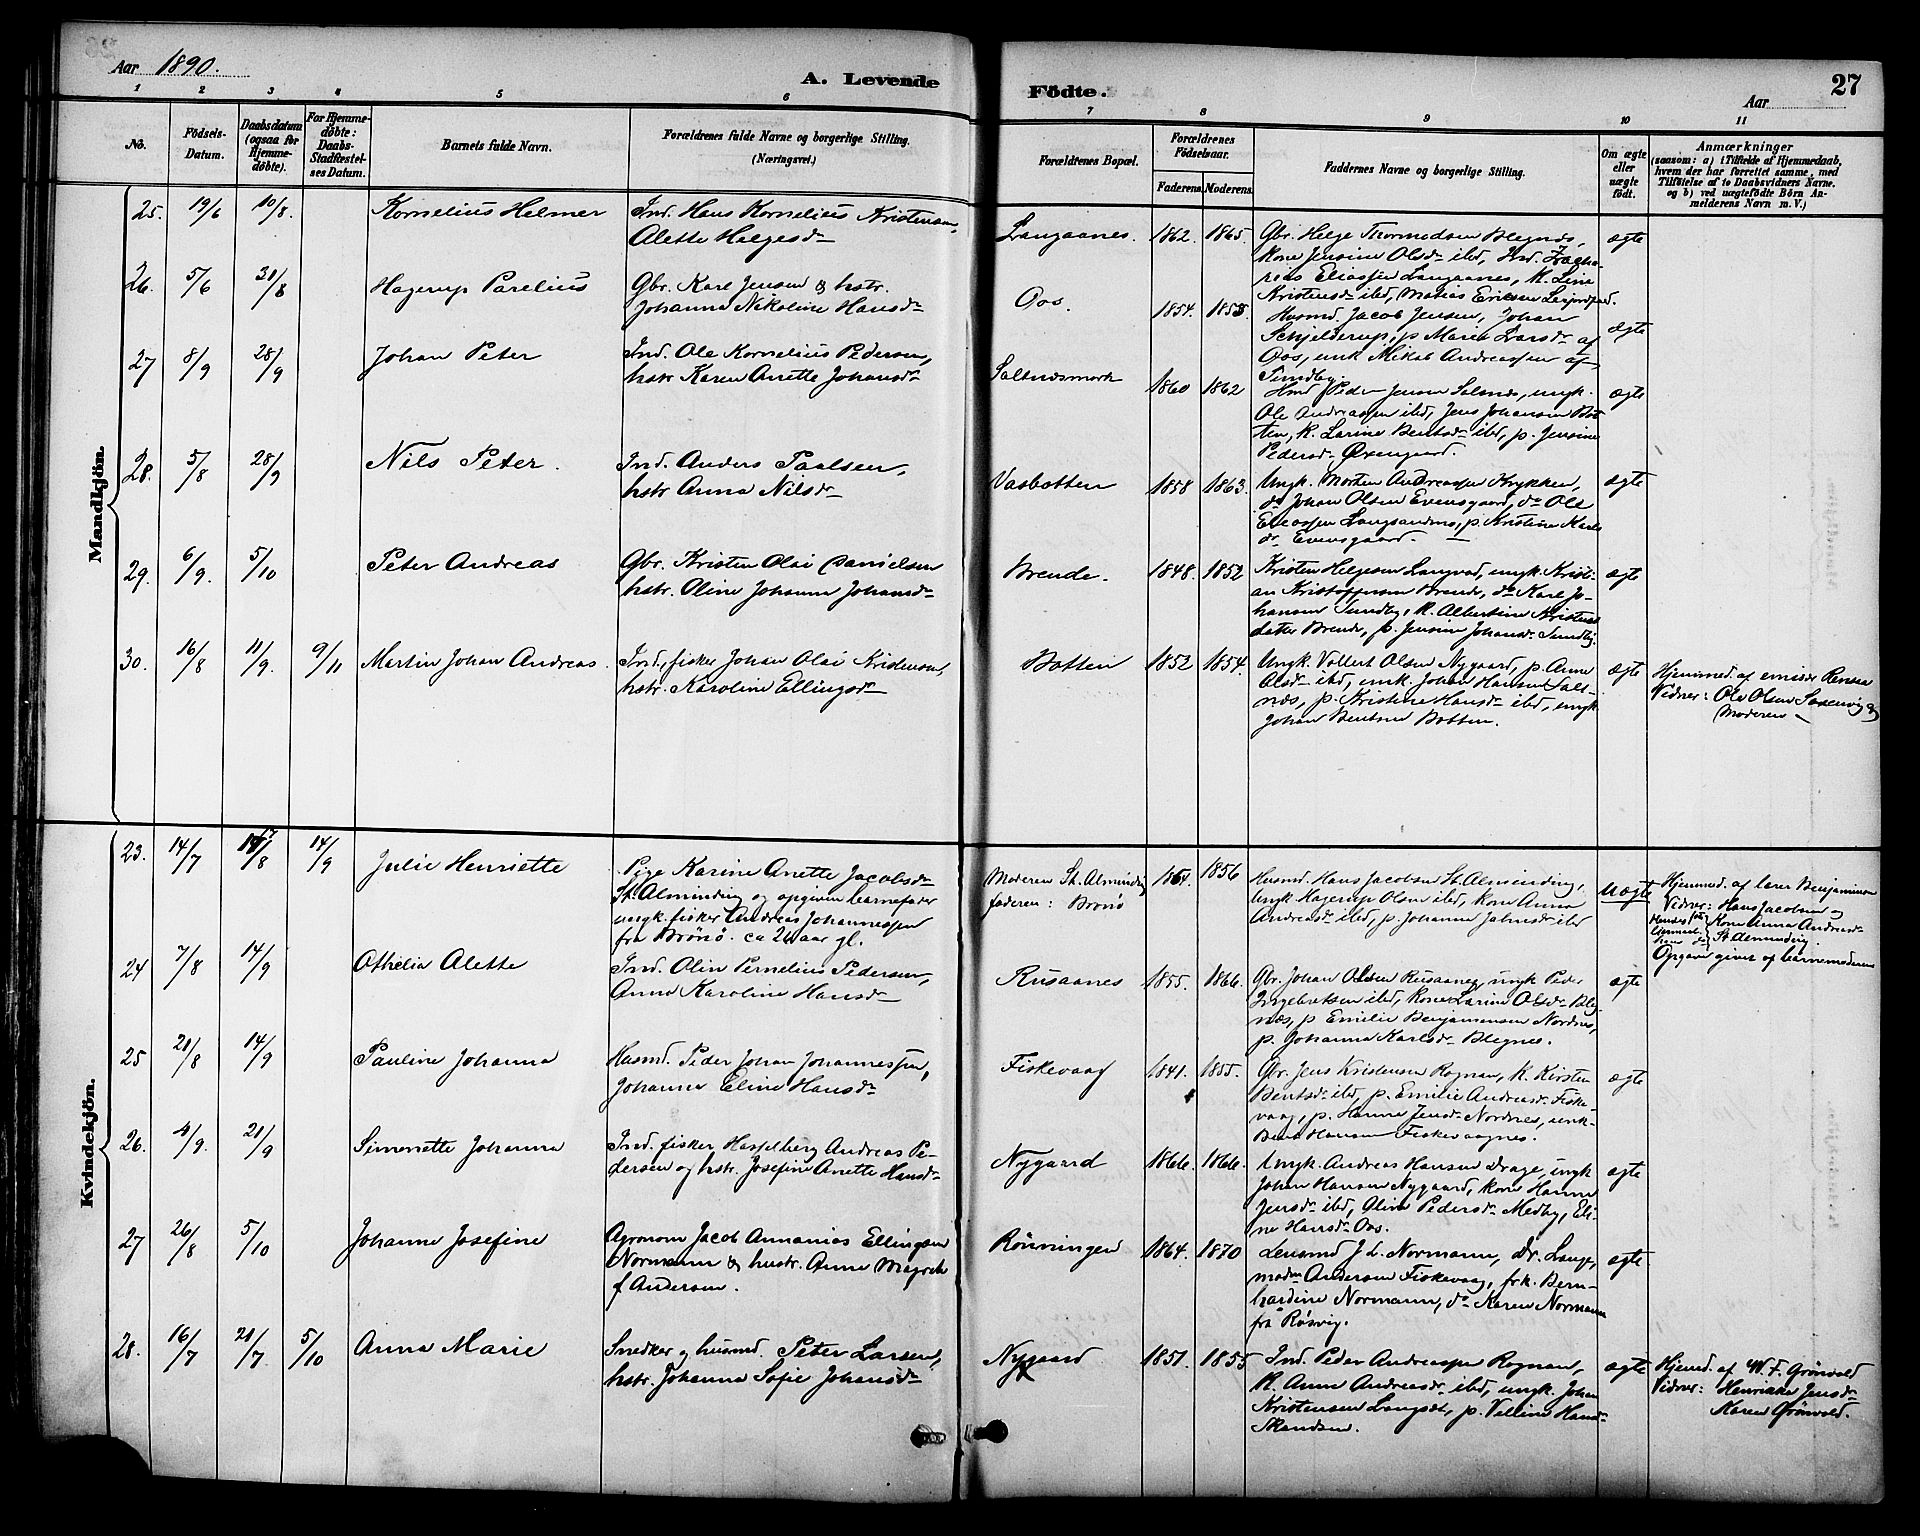 Aar 1890.
A. Levende
Födte.
27
Aar
1 2 3 4 5 6 7 8 9 10 11
No.
Födsels-
Datum.
Daabsdatum
(ogsaa for
Hjemme-
döbte).
For Hjemme-
döbte:
Daabs-
Stadfæstel-
ses Datum.
Barnets fulde Navn.
Forældrenes fulde Navne og borgerlige Stilling.
(Næringsvei.)
Forældrenes Bopæl.
Forældrenes
Födselsaar.
Faderens. Moderens.
Faddernes Navne og borgerlige Stilling.
Om ægte
eller
uægte
födt.
Anmærkninger
(saasom: a) i Tilfælde af Hjemmedaab,
hvem der har forrettet samme, med
Tilföielse af to Daabsvidners Navne,
og b) ved uægtefödte Börn An-
melderens Navn m. V.)
Mandkjön.
25. 19/6 10/8. Kornelius Helmer
Ind. Hans Kornelius Kristensen,
Alette Helgesd
Langaanes. 1862. 1865.
Gbr. Helge Thormodsen Blegnæs,
kone Jensine Olsd ibd, Ind. Zacha-
rias Eliassen Langaanes, k. Line
Kristensd ibd, Matias Eriksen
ægte
26. 5/6 31/8 Hagerup Parelius
Gbr. Karl Jensen & hstr.
Johanna Nikoline Hansd
Oos. 1854. 1855
Husmd. Jacob Jensen, Johan
Schjelderup, p. Marie Larsd af
Oos, unk Mikal Andreassen af
Sundby.
ægte
27 8/9 28/9 Johan Peter
Ind. Ole Kornelius Pedersen,
hstr Karen Anette Johansd
Saltnæsmark 1860 1862
Hmd Peder Jensen Salnæs, ungk.
Ole Andreassen ibd, Jens Johansen Bot-
ten, k. Larine Bentsd ibd, p. Jensine
Pedersd Øxengaard.
ægte
28. 5/8 28/9 Nils Peter.
Ind. Anders Paalsen,
hstr Anna Nilsd
Vasbotten 1858 1863.
Ungk. Morten Andreassen Krykken,
do Johan Olsen Evensgaard, do Ole
Eliassen Langsandmo, p. Kristine Karls
dr. Evensgaard.
ægte
29. 6/9. 5/10 Peter Andreas
Gbr. Kristen Olai Danielsen
hstr. Oline Johanna Johansd
Brende. 1848. 1852
Kristen Helgesen Langvad, ungk. Krist-
an Kristoffersen Brende, do Karl Jo-
hansen Sundby, k. Albertine Kristens
datter Brende, p. Jensine Johansd Sundby.
ægte
30. 16/8 11/9. 9/11 Martin Johan Andreas.
Ind., fisker Johan Olai Kristensen,
hstr. Karoline Ellingsd
Botten 1852 1854.
Ungk. Vollert Olsen Nygaard, p. Anne
Olsd ibd, unk. Johan Hansen Salt-
næs, p. Kristine Hansd ibd, ungk
Johan Bentsen Botten.
ægte
Hjemmed. af emissær Renssa
Vidner: Ole Olsen Saxenvig og
Moderen
Kvindekjön.
23. 14/7 17/8 14/9 Julie Henriette
Pige Karine Anette Jacobsd
St. Alminding og opgiven barnefader
ungk. fisker Andreas Johannessen
fra Brönö. ca 26 aar gl.
Moderen St. Alminding
faderen: Brönö
1864. 1856
Husmd. Hans Jacobsen St. Alminding,
ungk Hagerup Olsen ibd, kone Anna
Andreasd ibd, p. Johanna ibd
uægte
Hjemmed. af lærer Benjaminsen
Vidner: Hans Jacobsen og
kone Anna Andreasd
St. Alminding.
Opgaven givet af barnemoderen
24 7/8 14/9 Othelia Alette
Ind. Olin Pernelius Pedersen,
Anna Karoline Hansd
Rusaanes 1855. 1866.
Gbr. Johan Olsen Rusaanes, ungk Peder
Ingebretsen ibd, kone Larine Olsd Bleg-
næs, p Emilie Benjaminsen Nordnes,
p. Johanna Karlsd Blegnes.
ægte
25 21/8 14/9 Pauline Johanna
Husmd. Peder Johan Johannessen,
Johanna Eline Hansd
Fiskevaag 1841. 1855.
Gbr. Jens Kristensen Rognan, k. Kirsten
Bentsd ibd, p. Emilie Andreasd Fiske-
vaag, p. Hanna Jensd Nordnes, unk.
Bent Hansen Fiskevaagnes.
ægte
26. 4/9. 21/9 Simonette Johanna
Ind. fisker Hasselberg Andreas Pe-
dersen og hstr. Josefine Anette Hansd
Nygaard 1866. 1866.
Ungk. Andreas Hansen Drage, ungk
Johan Hansen Nygaard, kone Hanna
Jensd ibd, Oline Pedersd Medby, Eli-
ne Hansd Oos.
ægte
27 26/8 5/10 Johanne Josefine
Agronom Jacob Annanias Ellingsen
Normann & hustr. Anna Magreth
f Andersen.
Rönningen 1864. 1870
Lensmd J. L. Normann, Dr. Lange,
madm Andersen Fiskevaag, frk. Bern-
hardine Normann, do Karen Normann
fra Røsvig.
ægte
28. 16/7 21/7 5/10 Anna Marie
Snedker og husmd. Peter Larsen,
hstr. Johanna Sofie Johansd
Nygaard 1851. 1855
Ind. Peder Andreassen Rognan,
k. Anna Andreasd ibd, ungk. Johan
Kristensen Langset, p. Velline Hansd
ægte
Hjemd. af W. F. Grönvold
Vidner: Henrikke Jensd
Maren Grönvold.